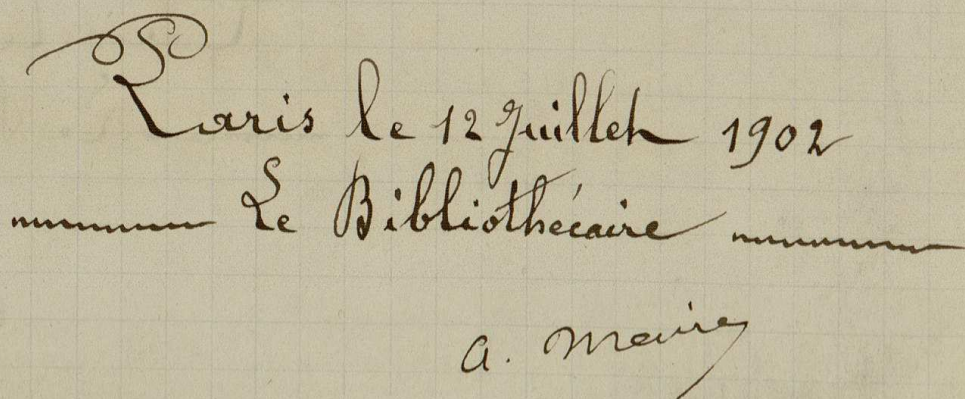 Paris le 12 Juillet 1902
Le Bibliothécaire
A. Maire